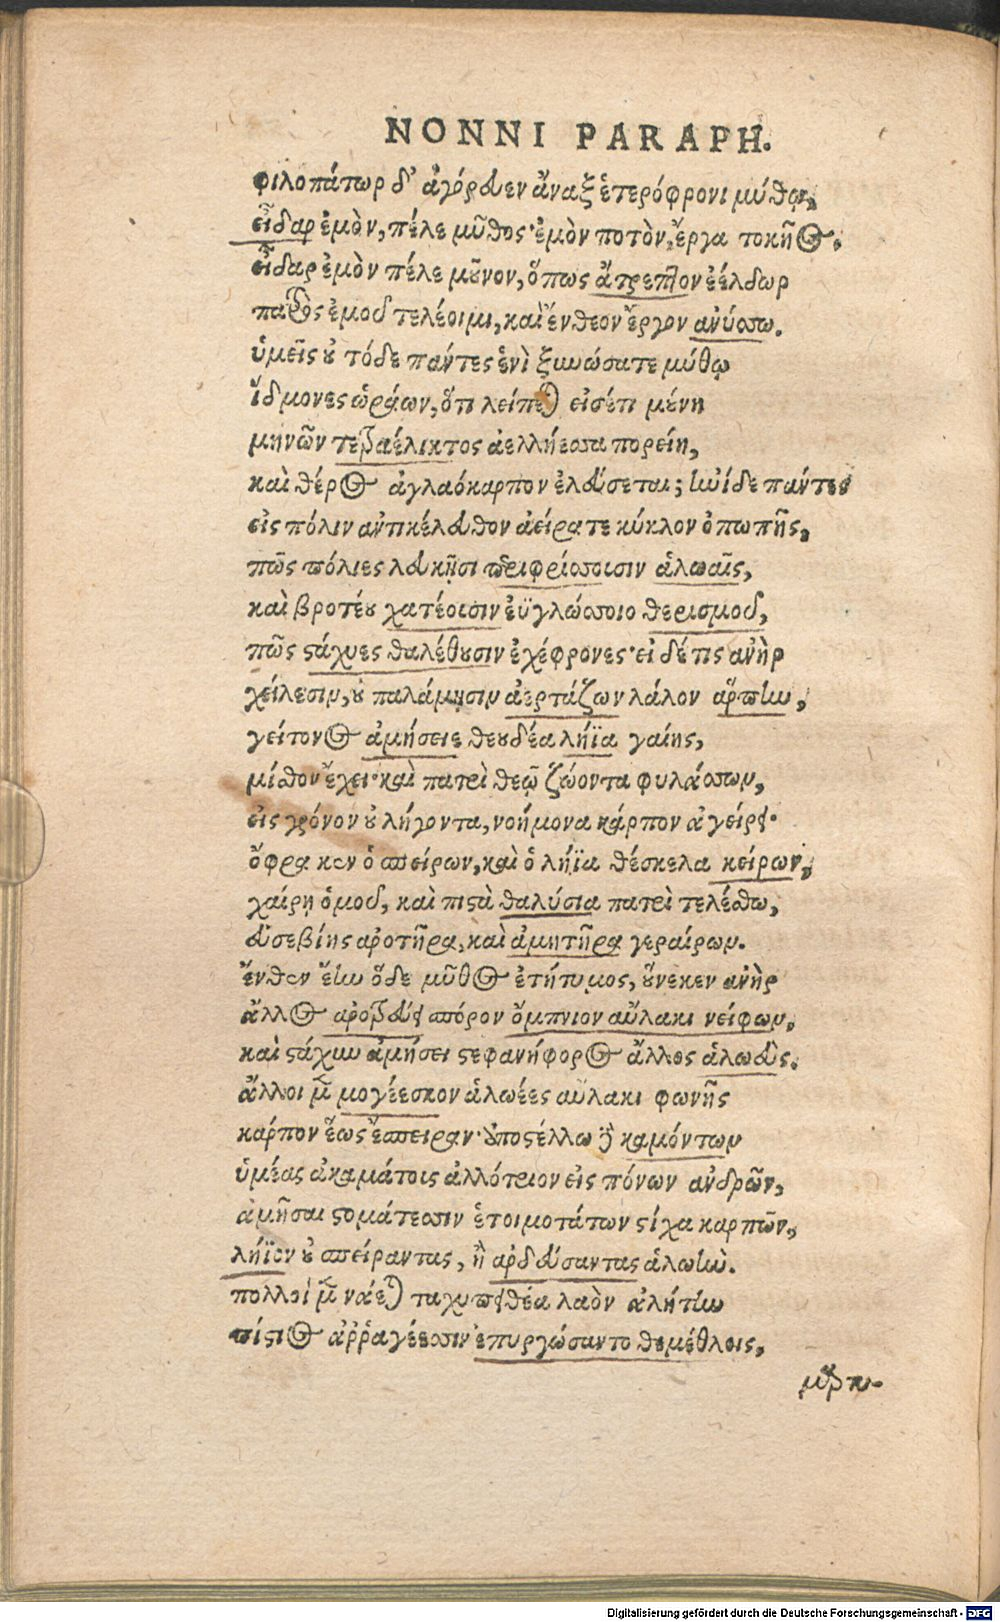 NONNI PARAPH.
φιλοπάτωρ δ' ἀγόρευεν ἄναξ ἑτερόφρονι μύθῳ,
εἶδαρ ἐμὸν, πέλε μῦθος· ἐμὸν ποτὸν, ἔργα τοκῆος.
εἶδαρ ἐμὸν πέλε μοῦνον, ὅπως ἄτρεπτον ἐέλδωρ
πατρὸς ἐμοῦ τελέοιμι, καὶ ἔνθεον ἔργον ἀνύσσω.
ὑμεῖς οὐ τόδε πάντες ἑνὶ ξυνώσατε μύθῳ
ἴδμονες ὡράων, ὅτι λείπεται εἰσέτι μένη
μηνῶν τετραέλικτος ἀελλήεσσα πορείη,
καὶ θέρος ἀγλαόκαρπον ἐλεύσεται; ἠνίδε πάντες
εἰς πόλιν ἀντικέλευθον ἀείρατε κύκλον ὀπωπῆς,
πῶς πόλιες λευκῇσι περιφρίσσουσιν ἀλωαῖς,
καὶ βροτέου χατέουσιν ἐϋγλώσσοιο θερισμοῦ,
πῶς στάχυες θαλέθουσιν ἐχέφρονες· εἰ δέ τις ἀνὴρ
χείλεσιν, οὐ παλάμῃσιν ἀερτάζων λάλον ἅρπην,
γείτονος ἀμήσειε θεουδέα λήϊα γαίης,
μίσθον ἔχει· καὶ πατρὶ θεῷ ζώοντα φυλάσσων,
εἰς χρόνον οὐ λήγοντα, νοήμονα κάρπον ἀγείρει·
ὄφρα κεν ὁ σπείρων, καὶ ὁ λήϊα θέσκελα κείρων,
χαίρῃ ὁμοῦ, καὶ πιστὰ θαλύσια πατρὶ τελέσθω,
εὐσεβίης ἀροτῆρα, καὶ ἀμητῆρα γεραίρων.
ἔνθεν ἔην ὅδε μῦθος ἐτήτυμος, οὕνεκεν ἀνὴρ
ἄλλος ἀροτρεύει σπόρον ὄμπνιον αὔλακι νείφων,
καὶ στάχυν ἀμήσει στεφανήφορος ἄλλος ἀλωεύς.
ἄλλοι μὲν μογέεσκον ἀλωέες αὔλακι φωνῆς
κάρπον ἕως ἔσπειραν· ἀποστέλλω δὲ καμόντων
ὑμέας ἀκαμάτοις ἀλλότριον εἰς πόνων ἀνδρῶν,
ἀμῆσαι στομάτεσσιν ἑτοιμοτάτων στίχα καρπῶν,
λήϊον οὐ σπείραντας, ἢ ἀρδεύσαντας ἀλωήν.
πολλοὶ μὲν ναέται ταχυπειθέα λαὸν ἀλήτην
πίστιος ἀῤῥαγέεσσιν ἐπυργώσαντο θεμέθλοις,
μῦρτυ-